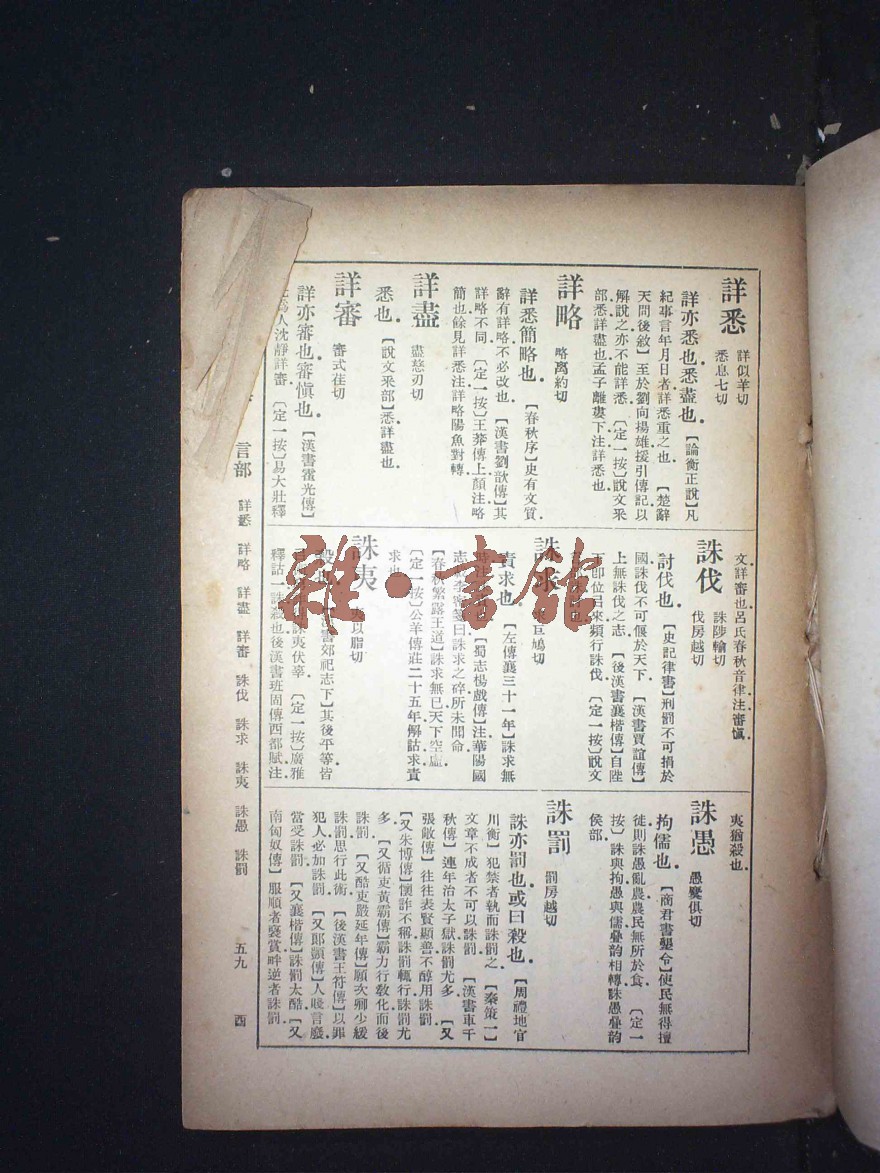 詳悉 詳似羊切
悉息七切
詳亦悉也悉盡也．［論衡正說］凡
紀事言年月日者詳悉重之也［楚辭
天問後敘］至於劉向揚雄援引傳記以
解說之亦不能詳悉．［定一按］說文釆
部悉詳盡也孟子離婁下注詳悉也
詳略 略离約切
詳悉簡略也．［春秋序］史有文質
辭有詳略不必改也［漢書劉歆傳］其
詳略不同［定一按］王莽傳上顏注略
簡也餘見詳悉注詳略陽魚對轉
詳盡 盡慈刃切
悉也．［說文釆部］悉詳盡也
詳審 審式荏切
詳亦審也審愼也．［漢書霍光傳］
爲人沈靜詳審．［定一按］易大壯釋
文詳審也呂氏春秋音律注審愼．
誅伐 誅陟輸切
伐房越切
討伐也．［史記律書］刑罰不可捐於
國誅伐不可偃於天下．［漢書賈誼傳］
上無誅伐之志．［後漢書襄楷傳］自陛
下卽位以來頻行誅伐．［定一按］說文
誅求
責求也．［左傳襄三十一年］誅求無
［蜀志楊戲傳］注華陽國
曰誅求之碎所未聞命
［春秋繁露王道］誅求無已天下空虛
［定一按］公羊傳莊二十五年解詁求責
求也
誅夷 夷以脂切
殺也．書郊祀志下］其後平等皆
誅夷伏辜．［定一按］廣雅
釋詁一誅殺也後漢書班固傳西都賦注
夷猶殺也．
誅愚 愚麌俱切
拘儒也．［商君書墾令］使民無得擅
徙則誅愚亂農農民無所於食．［定一
按］誅與拘愚與儒疊韵相轉誅愚疊韵
侯部．
誅罰 罰房越切
誅亦罰也或曰殺也．［周禮地官
川衡］犯禁者執而誅罰之．［秦策一］
文章不成者不可以誅罰［漢書車千
秋傳］連年治太子獄誅罰尤多．［又
張敞傳］往往表賢顯善不醇用誅罰
［又朱博傳］懷詐不稱誅罰輒行誅罰尤
多．［又循吏黃霸傳］霸力行敎化而後
誅罰［又酷吏嚴延年傳］願次卿少緩
誅罰思行此術．［後漢書王符傳］以罪
犯人必加誅罰［又郞顗傳］人賤言廢
當受誅罰．［又襄楷傳］誅罰太酷．［又
南匈奴傳］服順者褒賞畔逆者誅罰．
言部 詳悉 詳略 詳盡 詳審 誅伐 誅求 誅夷 誅愚 誅罰 五九 酉
雜·書館